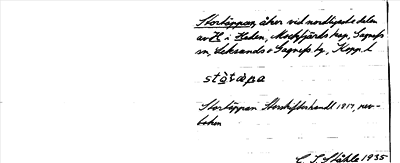 Stortäppan, åker vid nordligaste delen
av H i Heden, Mockfjärds kap., Gagnefs
sn, Leksands o Gagnefs tg, Kopp. l.
stɑ̀täpa
Stortäppan Storskifteshandl
boken
C. I. Ståhle 1935